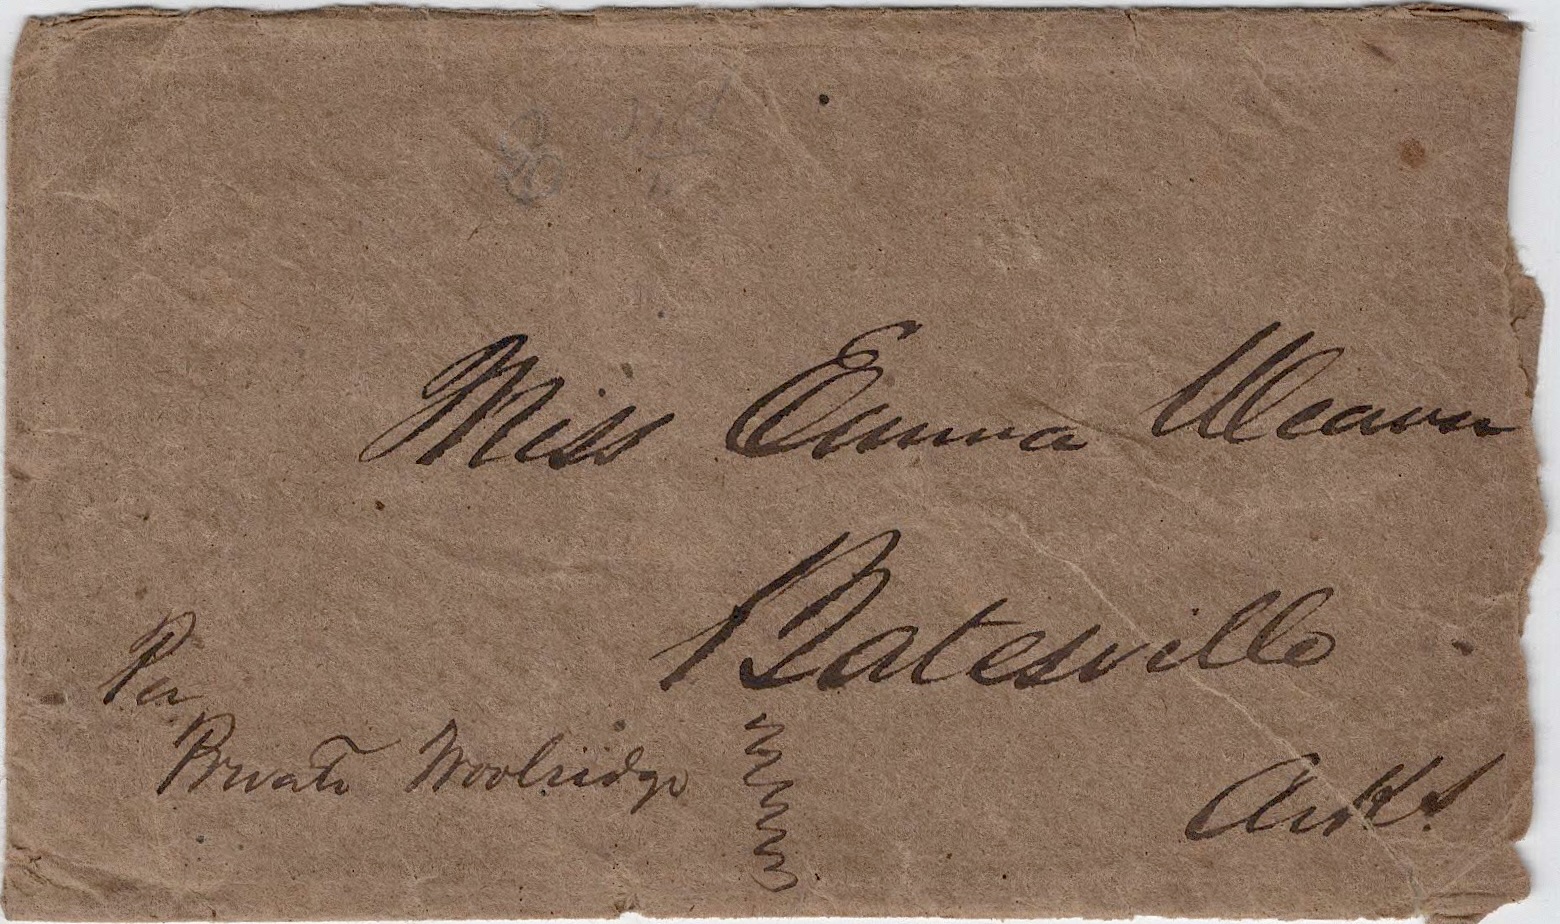 Miss Emma Weaver
Batesville
Arks.
Per
Private Woolridge